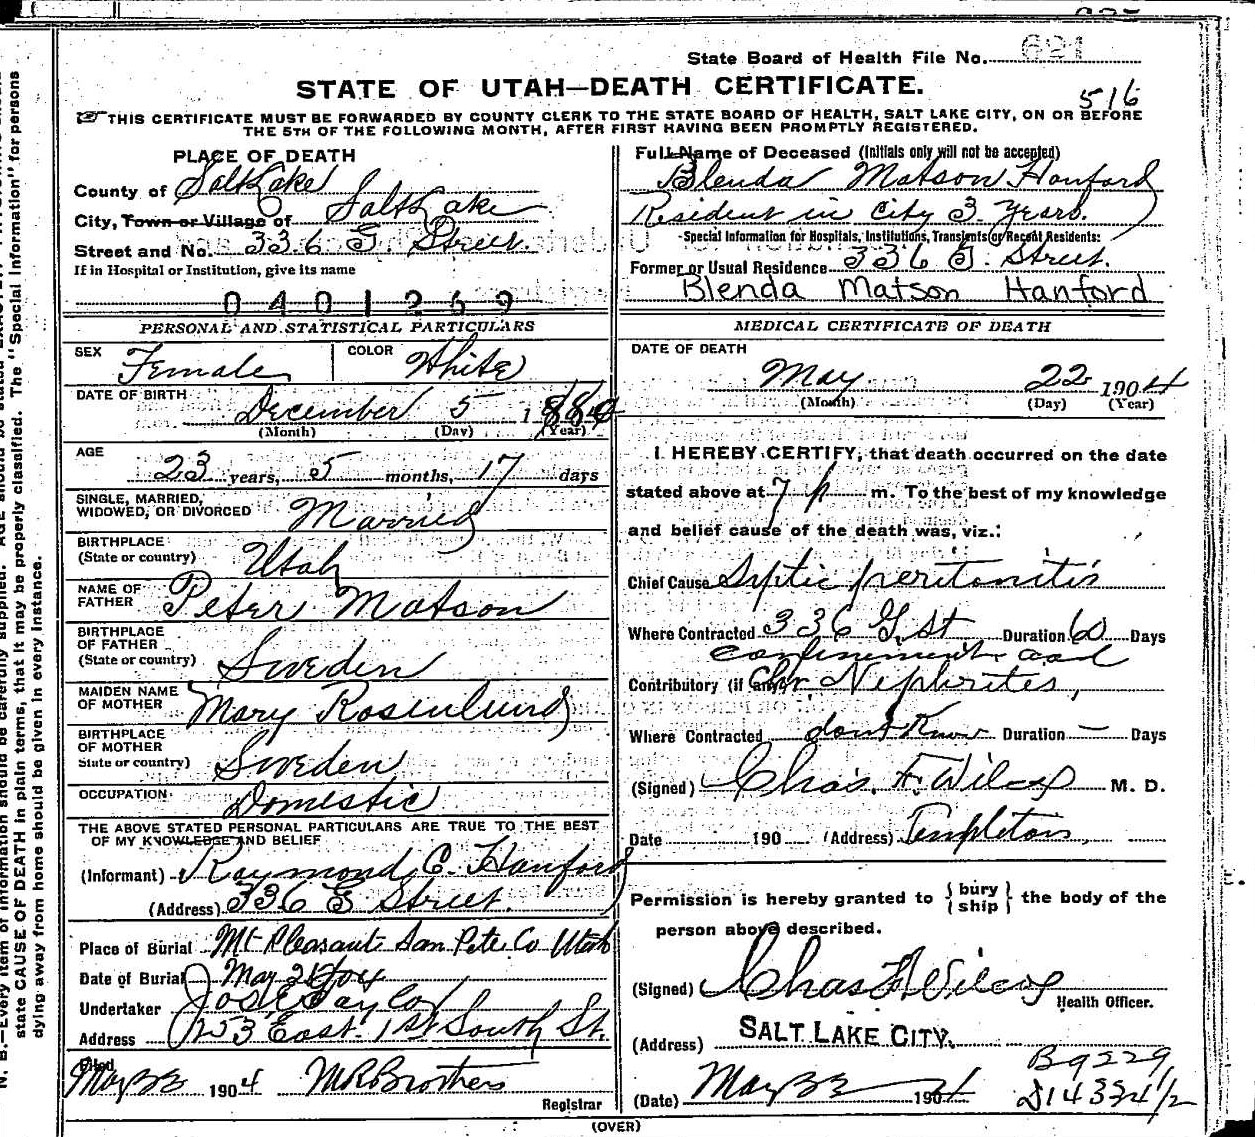 State Board of Health File No. 621
STATE OF UTAH—DEATH CERTIFICATE.
516
THIS CERTIFICATE MUST BE FORWARDED BY COUNTY CLERK TO THE STATE BOARD OF HEALTH, SALT LAKE CITY, ON OR BEFORE
THE 5TH OF THE FOLLOWING MONTH, AFTER FIRST HAVING BEEN PROMPTLY REGISTERED.
PLACE OF DEATH
County of Salt Lake
City, Town or Village of Salt Lake
Street and No. 336 G Street.
If in Hospital or Institution, give its name
0401269
PERSONAL AND STATISTICAL PARTICULARS
SEX Female COLOR White
DATE OF BIRTH December 5 1880
(Month) (Day) (Year)
AGE 23 years, 5 months, 17 days
SINGLE, MARRIED,
WIDOWED, OR DIVORCED Married
BIRTHPLACE
(State or country) Utah
NAME OF
FATHER Peter Matson
BIRTHPLACE
OF FATHER
(State or country) Sweden
MAIDEN NAME
OF MOTHER Mary Rosenlund
BIRTHPLACE
OF MOTHER
State or country) Sweden
OCCUPATION Domestic
THE ABOVE STATED PERSONAL PARTICULARS ARE TRUE TO THE BEST
OF MY KNOWLEDGE AND BELIEF
(Informant) Raymond C. Hanford
(Address) 336 G Street.
Place of Burial Mt Pleasant San Pete Co Utah
Date of Burial May 1904
Undertaker Jos E Taylor
Address 253 East 1st South St.
Filed
May 23 1904 M R Brothers
Registrar
Full Name of Deceased (Initials only will not be accepted)
Blenda Matson Hanford
Resident in City 3 Years.
Special Information for Hospitals, Institutions, Transients or Recent Residents:
Former or Usual Residence 336 G. Street.
Blenda Matson Hanford
MEDICAL CERTIFICATE OF DEATH
DATE OF DEATH
May 22 1904
(Month) (Day) (Year)
I HEREBY CERTIFY, that death occurred on the date
stated above at 7 p m. To the best of my knowledge
and belief cause of the death was, viz.:
Chief Cause Septic peritonitis
Where Contracted 336 G. St Duration 60 Days
confinement and
Contributory (if any) Chr. Nephrites,
Where Contracted dont Know Duration — Days
(Signed) Chas. F. Wilcox M. D.
Date 190 (Address) Templeton
Permission is hereby granted to { bury ship } the body of the
person above described.
(Signed) Chas F Wilcox
Health Officer.
(Address) SALT LAKE CITY.
B9229,
(Date) May 23 1904 D14334 1/2
(OVER)
N. B.—Every item of information should be carefully supplied. AGE should be stated EXACTLY.
state CAUSE OF DEATH in plain terms, that it may be properly classified. The "Special Information" for persons
dying away from home should be given in every instance.